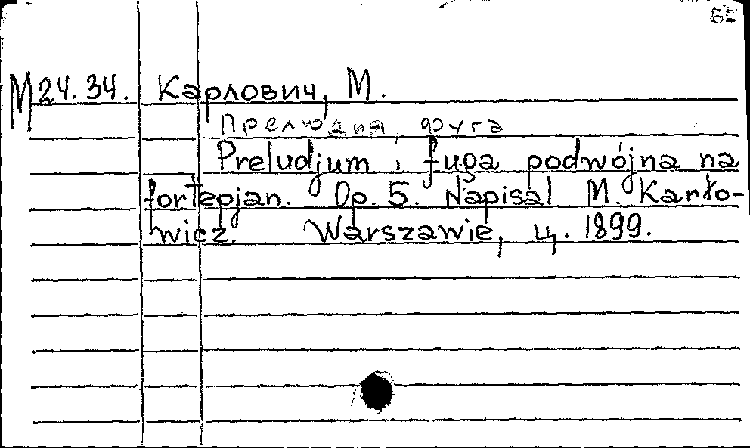 М24.34. Карлович, М.
Прелюдия, фуга
Preludjum i fuga podwójna na
fortepjan. Op. 5. Napisal M. Karło-
wicz. Warszawie, ц. 1899.